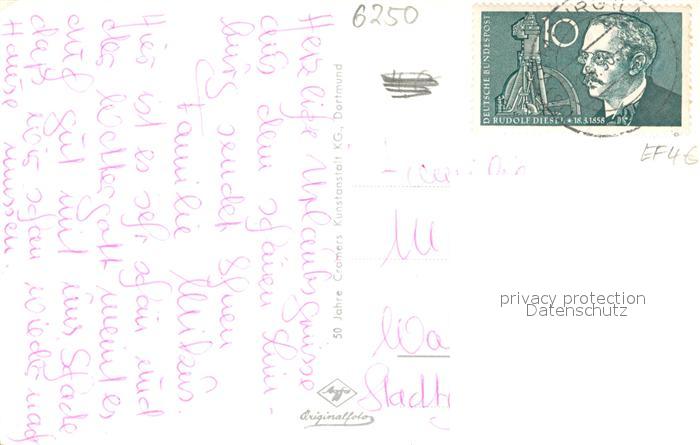 6250
DEUTSCHE BUNDESPOST
10
RUDOLF DIESEL ★ 18.3.1858
EF4€
Herzliche Urlaubsgrüsse
aus dem schönen Lim-
burg sendet Ihnen
Familie
Hier ist es sehr schön und
der Wettergott meint es
auch gut mit uns. Schade
daß wir schon wieder nach
Hause müssen.
50 Jahre Cramers Kunstanstalt KG., Dortmund
Familie
M
Wa
Stadt
privacy protection
Datenschutz
Agfa
Originalfoto